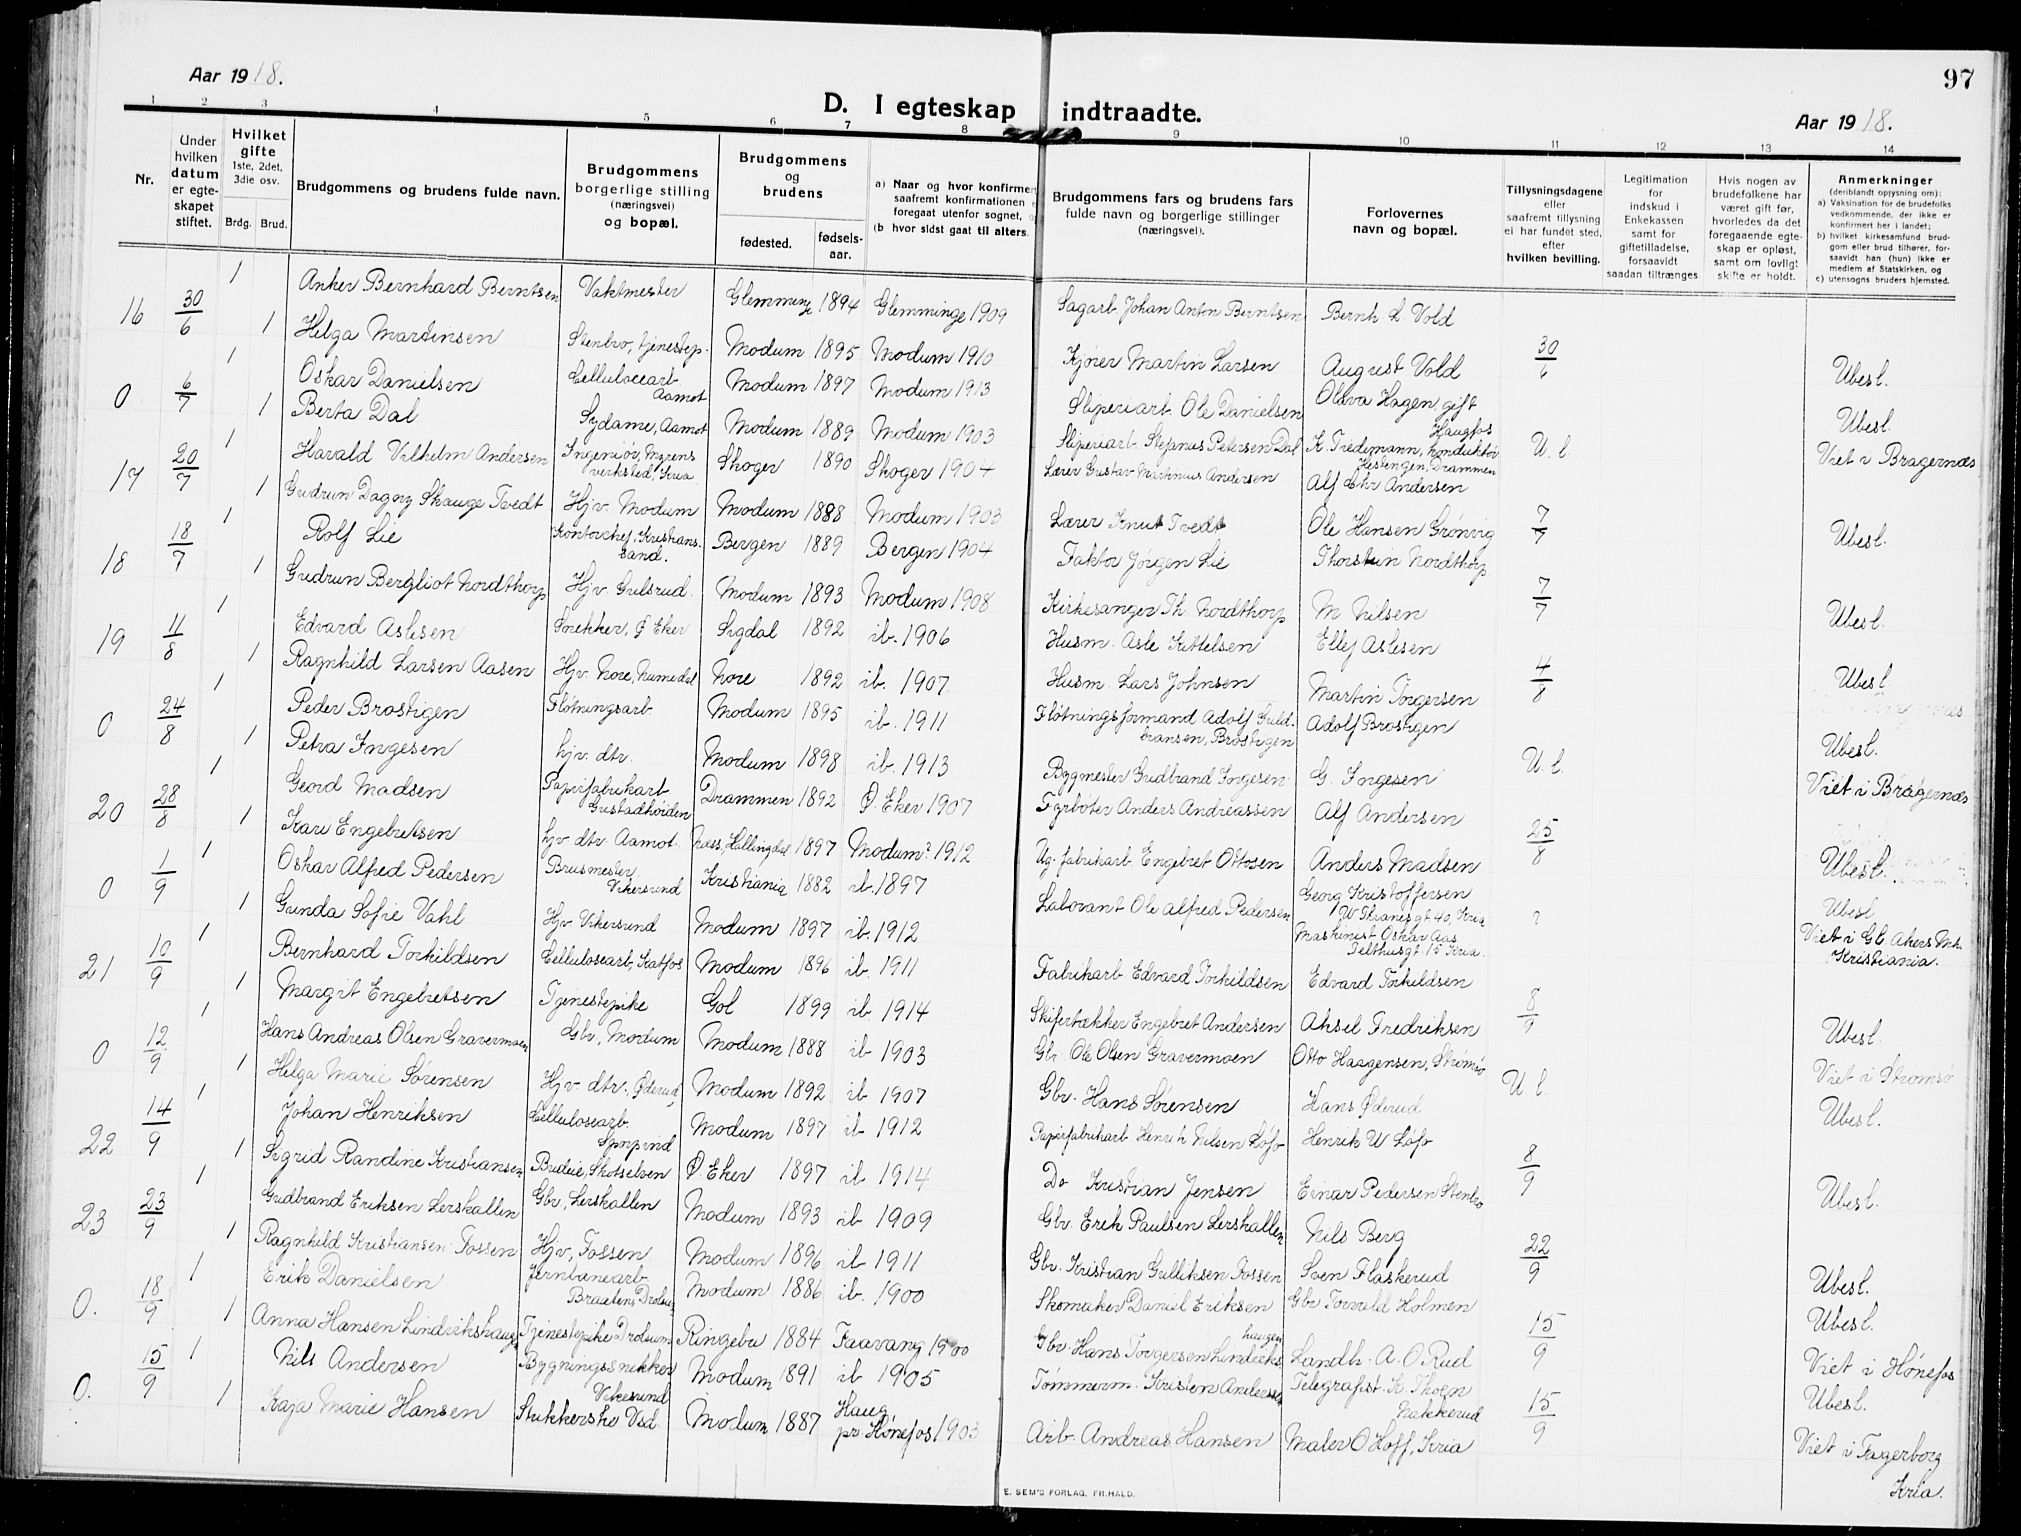 Aar 1918.
97
D. I egteskap indtraadte.
Aar 1918.
1 2 3 4 5 6 7 8 9 10 11 12 13 14
Nr.
Under hvilken datum er egteskapet stiftet.
Hvilket gifte 1ste, 2det, 3die osv.
Brdg. Brud.
Brudgommens og brudens fulde navn.
Brudgommens borgerlige stilling (næringsvei) og bopæl.
Brudgommens og brudens
fødested. fødselsaar.
a) Naar og hvor konfirmert saafremt konfirmationen foregaat utenfor sognet,
(b hvor sidst gaat til alters.
Brudgommens fars og brudens fars fulde navn og borgerlige stillinger (næringsvei).
Forlovernes navn og bopæl.
Tillysningsdagene eller saafremt tillysning ei har fundet sted, efter hvilken bevilling.
Legitimation for indskud i Enkekassen samt for giftetilladelse, forsaavidt saadan tiltrænges
Hvis nogen av brudefolkene har været gift før, hvorledes da det foregaaende egteskap er opløst, samt om lovligt skifte er holdt.
Anmerkninger (deriblandt opjysning om):
a) Vaksination for de brudefolks vedkommende, der ikke er konfirmert her i landet;
b) hvilket kirkesamfund brudgom eller brud tilhører, forsaavidt han (hun) ikke er medlem af Statskirken, og
c) utensogns bruders hjemsted.
16 30/6 1 Anker Bernhard Berntsen Vaktmester Glemminge 1894 Glemminge 1909 Sagarb. Johan Anton Berntsen Bernh L. Vold
1 Helga Martinsen Stenbro, tjenestep. Modum 1895 Modum 1910 Kjører Martin Larsen August Vold 30/6 Ubesl.
0 6/7 1 Oskar Danielsen Cellulocearb. Aamot Modum 1897 Modum 1913 Sliperiarb. Ole Danielsen Olava Hagen, gift Haugfos
1 Berta Dal Sydame, Aamot Modum 1889 Modum 1903 Sliperiarb. Stefanus Petersen Dal K. Tredemann, konduktør Hestengen, Drammen U. l. Ubesl. Viet i Bragernæs
17 20/7 1 Harald Vilhelm Andersen Ingeniør, Myrens verksted, Kria Skoger 1890 Skoger 1904 Lærer Gustav Martinius Andersen Alf Chr Andersen
1 Gudrun Dagny Skauge Tvedt Hjv. Modum Modum 1888 Modum 1903 Lærer Knut Tvedt Ole Hansen Grønvig 7/7 Ubesl.
18 18/7 1 Rolf Lie Kontorchef, Kristianssand. Bergen 1889 Bergen 1904 Faktor Jørgen Lie Thorstein Nordthorp
1 Gudrun Bergliot Nordthorp Hjv. Gulsrud. Modum 1893 Modum 1908 Kirkesanger Th. Nordthorp M Nilsen 7/7 Ubesl.
19 11/8 1 Edvard Aslesen Snekker, Ø Eker Sigdal 1892 ib. 1906 Husm. Asle Kittelsen Ellef Aslesen
1 Ragnhild Larsen Aasen Hjv. Nore, Numedal Nore 1892 ib. 1907 Husm. Lars Johnsen Martin Torgersen 4/8 Ubesl
0 24/8 1 Peder Brostigen Fløtningsarb. Modum 1895 ib. 1911 Fløtningsformand Adolf Guldbransen, Brostigen Adolf Brostigen
1 Petra Ingesen hjv. dtr. Modum 1898 ib. 1913 Bygmester Gudbrand Ingesen G. Ingesen U. l. Ubesl. Viet i Bragernæs
20 28/8 1 Georg Madsen Papirfabrikarb Gustadhøiden Drammen 1892 Ø. Eker 1907 Fyrbøter Anders Andreassen Alf Andersen
1 Kari Engebretsen hjv dtr Aamot. Næss, Hallingdal 1897 Modum? 1912 Ug. fabrikarb Engebret Ottosen Anders Madsen 25/8 Ubesl.
0 1/9 1 Oskar Alfred Pedersen Brusmester, Vikersund Kristiania 1882 ib. 1897 Laborant Ole Alfred Pedersen Georg Kristoffersen W Thranes gt. 40, Kria
1 Gunda Sofie Vahl Hjv. Vikersund Modum 1897 ib. 1912 Maskinist Oskar Aas Telthusgt 15 Kria. ? Ubesl Viet i Gl. Akers Mk. Kristiania.
21 10/9 1 Bernhard Torkildsen Cellulosearb, Katfos Modum 1896 ib. 1911 Fabrikarb Edvard Torkildsen Edvard Torkildsen
1 Margit Engebretsen Tjenestepike Gol 1899 ib. 1914 Skifertækker Engebret Andersen Aksel Fredriksen 8/9 Ubesl.
0 12/9 1 Hans Andreas Olsen Gravermoen Gbr, Modum Modum 1888 ib 1903 Gbr. Ole Olsen Gravermoen Otto Haagensen, Strømsø
1 Helga Marie Sørensen Hjv. dtr. Øderud Modum 1892 ib 1907 Gbr. Hans Sørensen Hans Øderud U. l. Viet i Strømsø Ubesl.
22 14/9 1 Johan Henriksen Cellulosearb. Modum 1897 ib 1912 Papirfabrikarb Henrik Nilsen Løfo Henrik W Løfo
1 Sigrid Randine Kristiansen Budeie, Skotselven Ø Eker 1897 ib 1914 Do Kristian Jensen Einar Pedersen Stenbro 8/9 Ubesl.
23 23/9 1 Gudbrand Eriksen Lerskallen Gbr., Lerskallen Modum 1893 ib 1909 Gbr. Erik Paulsen Lerskallen Nils Berg
1 Ragnhild Kristiansen Fossen Hjv, Fossen Modum 1896 ib 1911 Gbr. Kristian Gulliksen Fossen Sven Flaskerud 22/9 Ubesl.
0. 18/9 1 Erik Danielsen Jernbanearb Braaten, Drolsum Modum 1886 ib. 1900 Skomaker Daniel Eriksen Gbr Torvald Holmen
1 Anna Hansen Lindrikshaugen Tjenestepike Drolsum Ringebu 1884 Faavang 1900 Gbr. Hans Torgersen Lindrikshaugen Landh. A. O. Rud 15/9 Ubesl. Viet i Hønefos
0. 15/9 1 Nils Andersen Bygningssnekker Vikesund Modum 1891 ib 1905 Tømmerm. Kristen Andersen Telegrafist K. Thoen Nakkerud
1 Kaja Marie Hansen Strikkerske Vsd. Modum 1887 Haug pr Hønefos 1903 Arb. Andreas Hansen Maler O Hoff, Kria 15/9 Ubesl. Viet i Fagerborg Kria.
E. SEM'S FORLAG, FR.HALD.